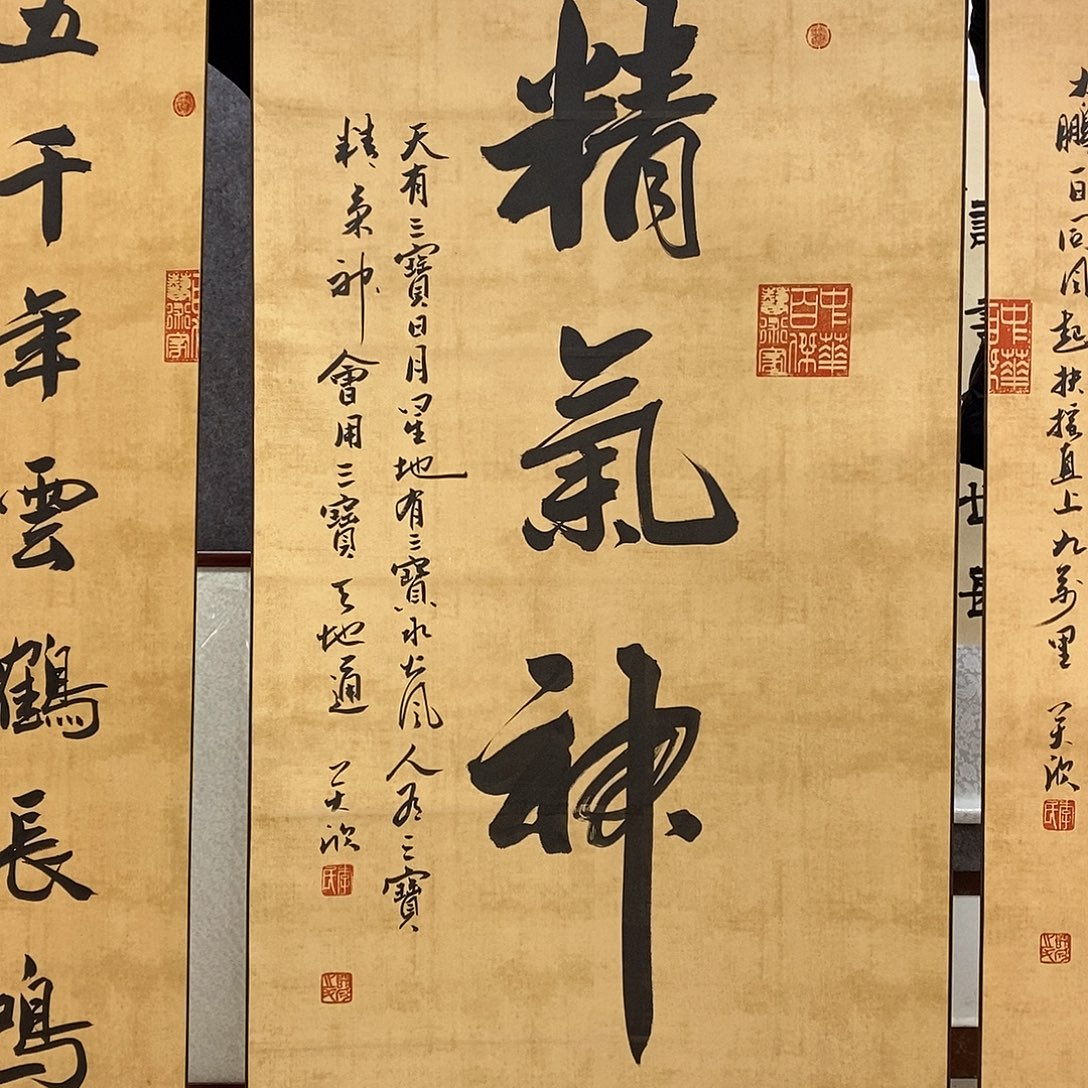 大鵬一日同風起扶搖直上九萬里
中華
中華百傑藝術家
精氣神
天有三寶日月星地有三寶水火風人有三寶
精氣神會用三寶天地通
李氏
五千年雲鶴長鳴